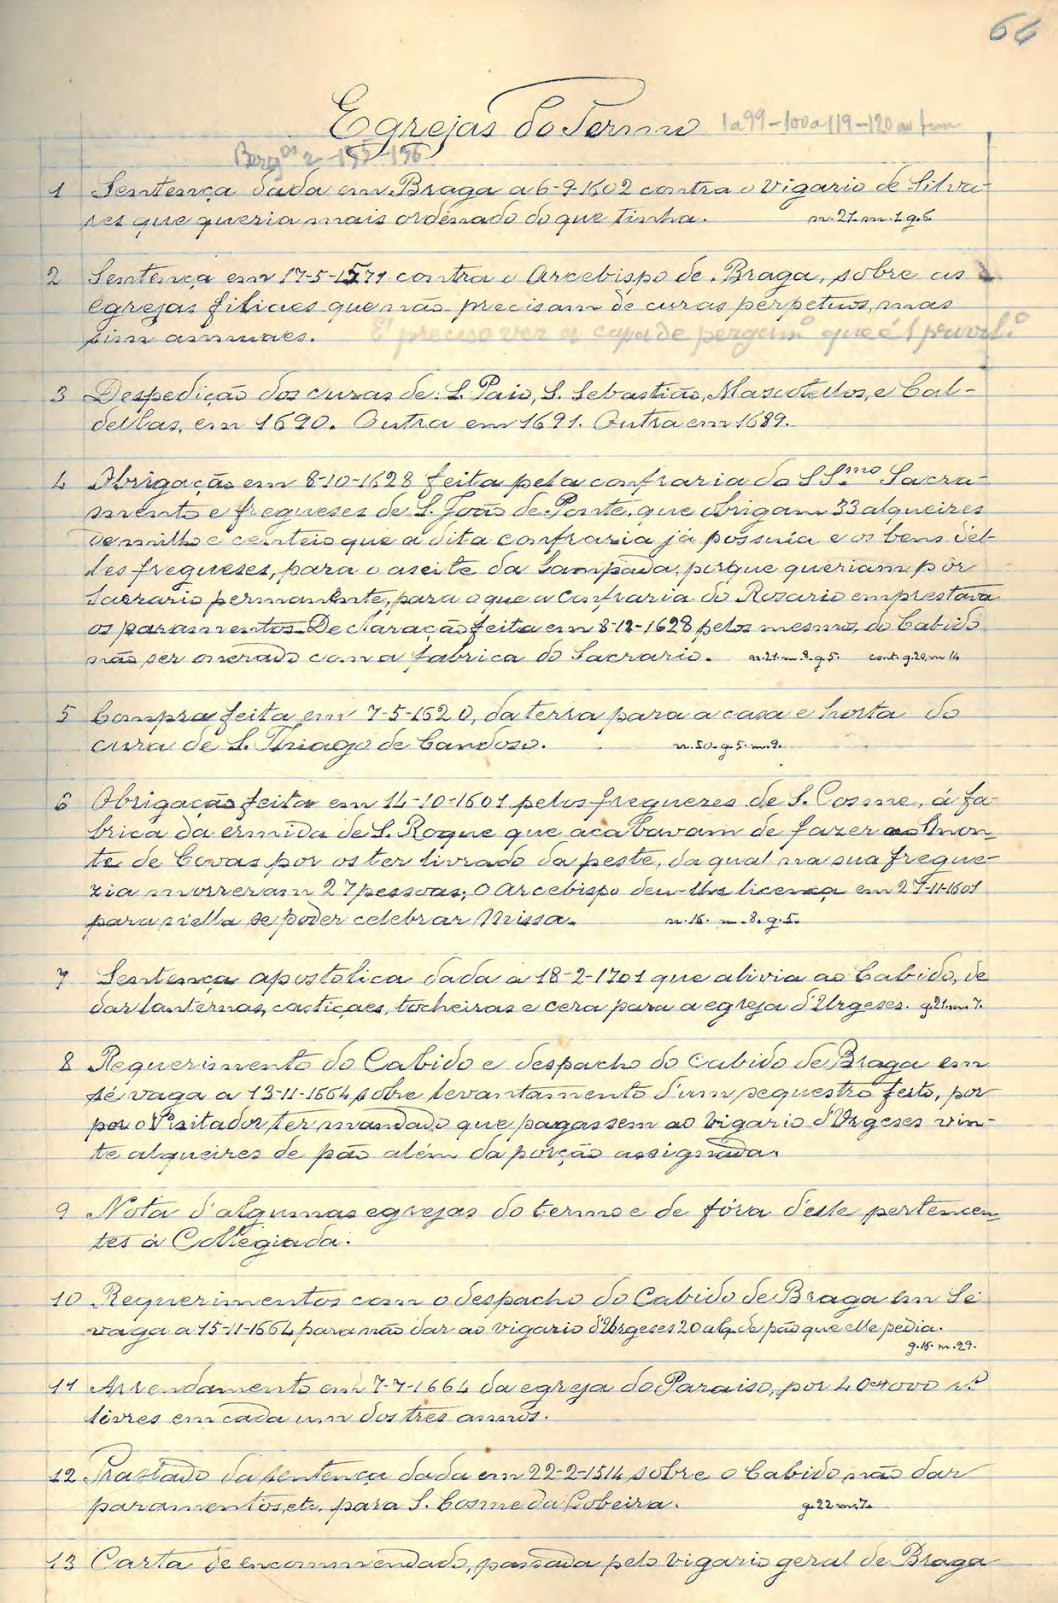 64
Egrejas do Termo 1 a 99 - 100 a 119 - 120 ao fim
Berg.os 2 - 155 - 156
1 Sentença dada em Braga a 6-9-1602 contra o Vigario de Silva-
res que queria mais ordenado do que tinha. n. 21. m. 1. g. 5.
2 Sentença em 17-5-1571 contra o Arcebispo de Braga, sobre as
egrejas filiaes que não precisam de curas perpetuos, mas
sim annuaes. É preciso ver a capa de pergam.o que é 1 pruvel.o
3 Despedição dos curas de S. Paio, S. Sebastião, Mascotellos, e Cal-
dellas, em 1690. Outra em 1691. Outra em 1689.
4 Obrigação em 8-10-1628 feita pela confraria do SS.mo Sacra-
mento e freguezes de S. João de Ponte, que obrigam 33 alqueires
de milho e centeio que a dita confraria já possuia e os bens del-
les freguezes, para o aseite da lampada, porque queriam pôr
Sacrario permanente, para o que a Confraria do Rosario emprestava
os paramentos. Declaração feita em 8-12-1628 pelos mesmos, do Cabido
não ser onerado com a fabrica do Sacrario. n. 21. m. 8. g. 5. cont. g. 20. m. 14
5 Compra feita em 7-5-1520, da terra para a casa e horta do
cura de S. Thiago de Candoso. n. 50. g. 5. m. 9.
6 Obrigação feita em 14-10-1601 pelos freguezes de S. Cosme, á fa-
brica da ermida de S. Roque que acabavam de fazer no mon-
te de Covas por os ter livrado da peste, da qual na sua fregue-
zia morreram 27 pessoas; o Arcebispo deu-lhes licença em 27-11-1601
para n'ella se poder celebrar Missa. n. 16. m. 8. g. 5.
7 Sentença apostolica dada a 18-2-1701 que alivia ao Cabido, de
dar lanternas, castiçaes, tocheiras e cera para a egreja d'Urgeses. g. 21. m. 7.
8 Requerimento do Cabido e despacho do Cabido de Braga em
sé vaga a 13-11-1664 sobre levantamento d'um sequestro feito, por
por o Visitador ter mandado que pagassem ao Vigario d'Urgeses vin-
te alqueires de pão além da porção assignada.
9 Nota d'algumas egrejas do termo e de fóra d'elle pertencen-
tes á Collegiada.
10 Requerimentos com o despacho do Cabido de Braga em Sé
vaga a 15-11-1664 para não dar ao vigario d'Urgeses 20 alq. de pão que elle pedia.
g. 15. m. 29.
11 Arrendamento em 7-7-1664 da egreja do Paraiso, por 40$000 rs.
livres em cada um dos tres annos.
12 Trastado da sentença dada em 22-2-1514 sobre o Cabido não dar
paramentos, etc. para S. Cosme da Lobeira. g. 22 m. 7.
13 Carta de encommendado, passada pelo vigario geral de Braga